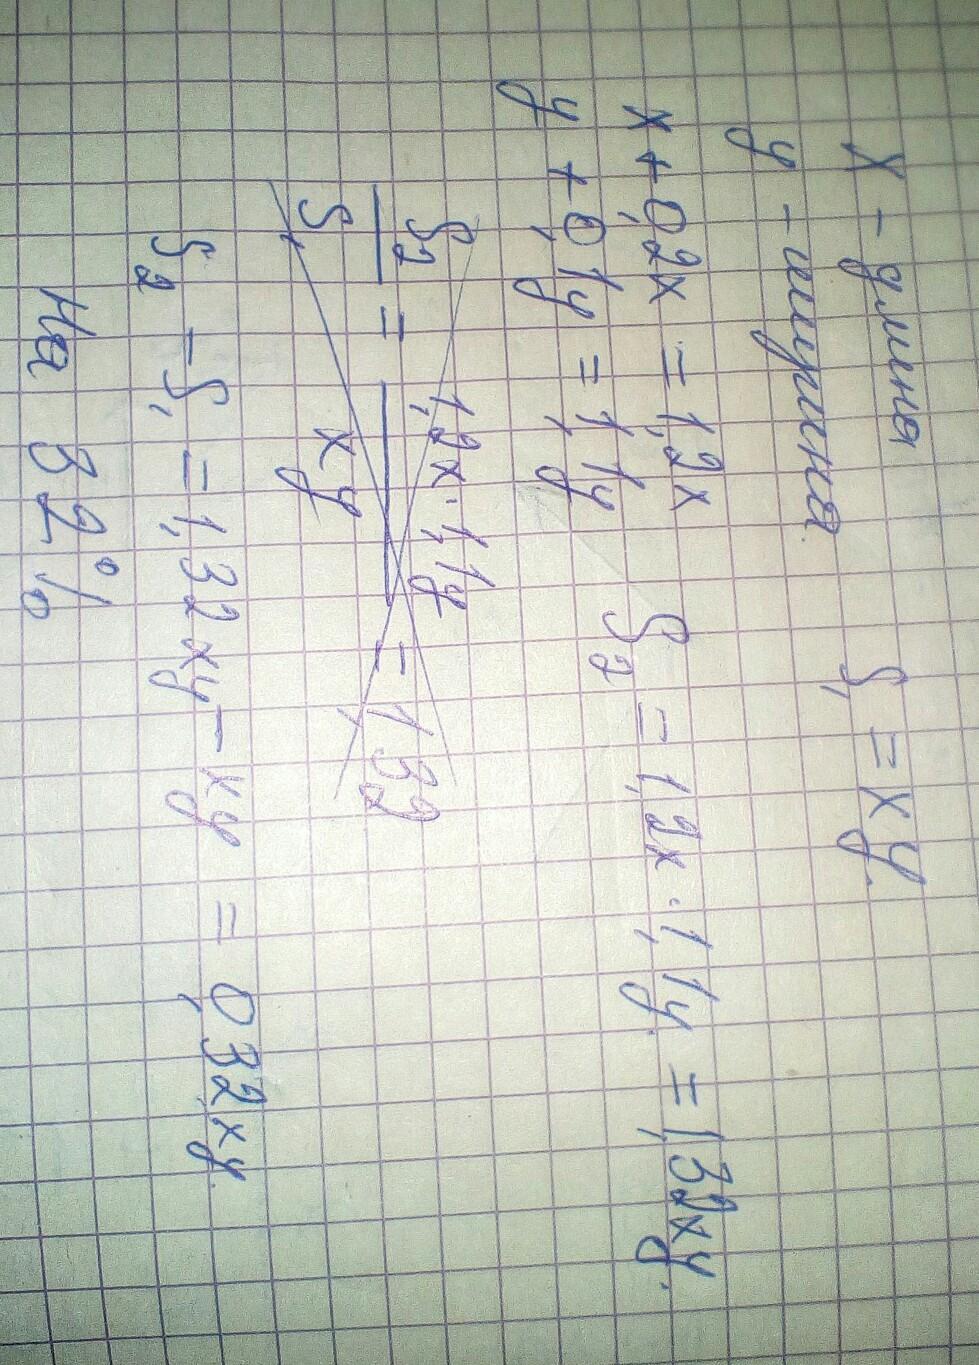 x - длина S₁ = xy.
y - ширина.
x + 0,2x = 1,2x S₂ = 1,2x · 1,1y. = 1,32xy.
y + 0,1y = 1,1y
S₂/S₁ = 1,2x·1,1y/xy = 1,32
S₂ - S₁ = 1,32xy - xy = 0,32xy.
На 32%